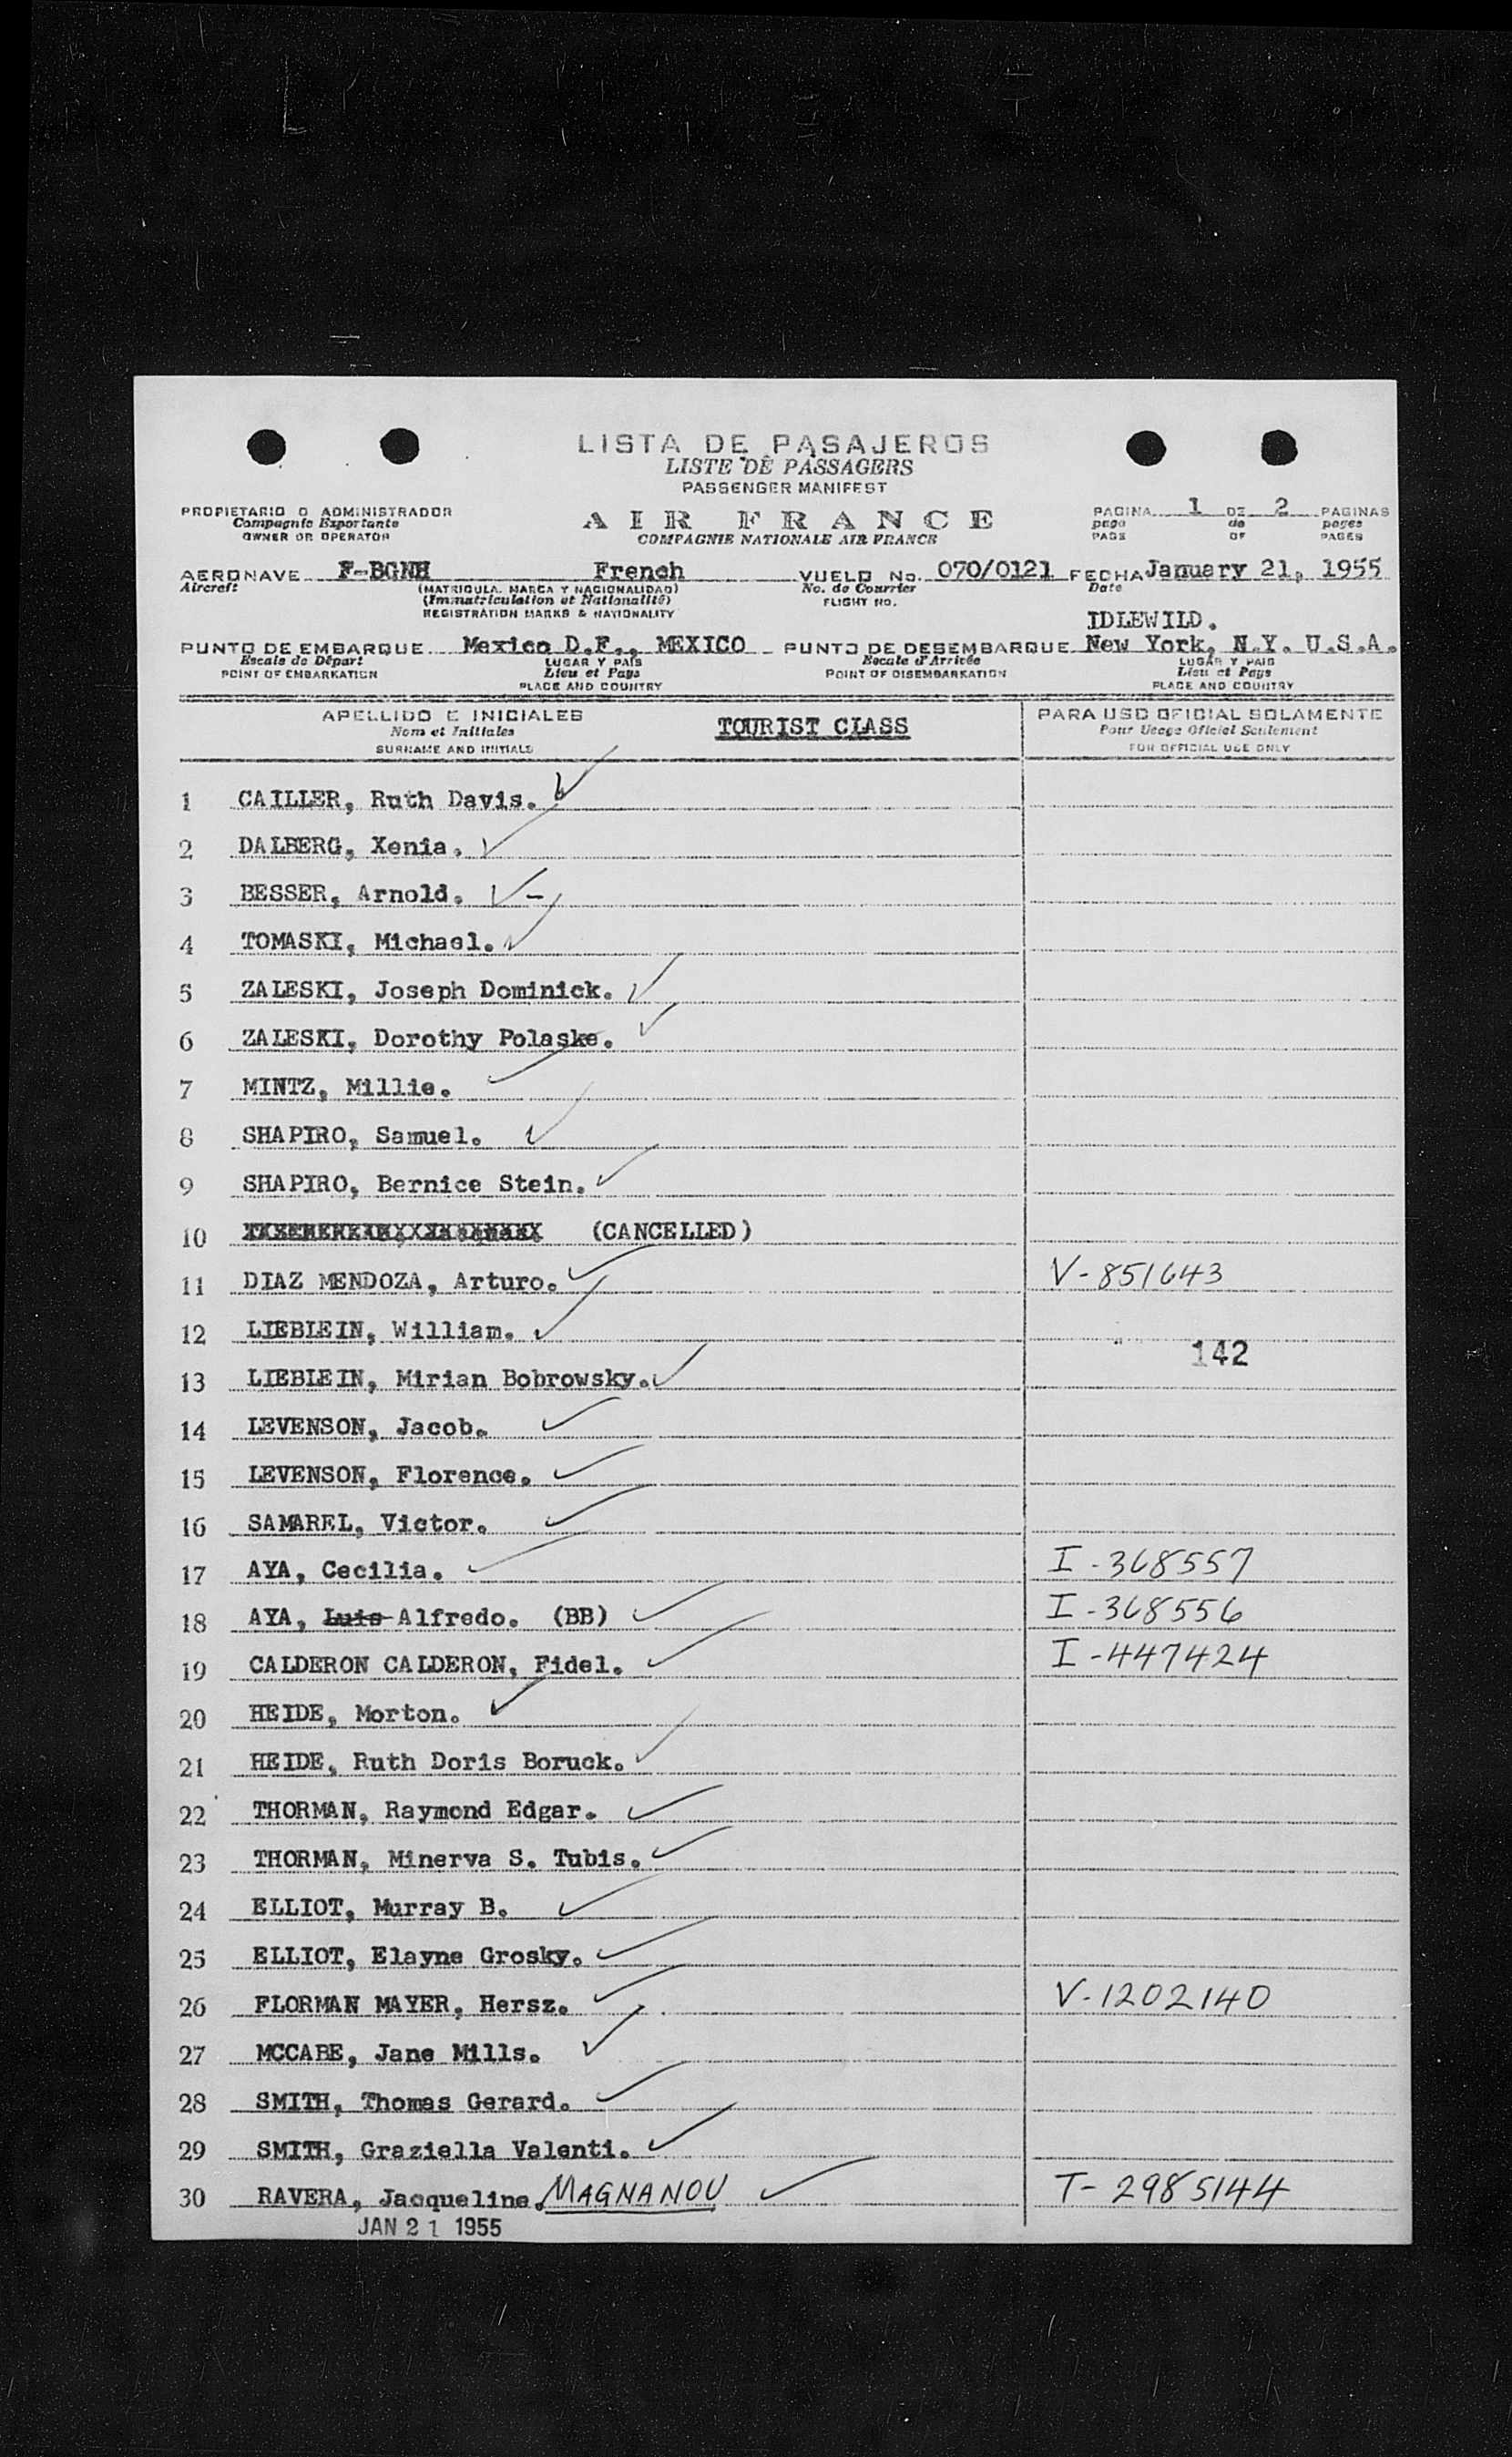 LISTA DE PASAJEROS
LISTE DE PASSAGERS
PASSENGER MANIFEST
PROPIETARIO O ADMINISTRADOR
Compagnie Exportante
OWNER OR OPERATOR
AIR FRANCE
COMPAGNIE NATIONALE AIR FRANCE
PAGINA 1 DE 2 PAGINAS
page de pages
PAGE OF PAGES
AERONAVE F-BGNH French VUELO No. 070/0121 FECHA January 21, 1955
Aircraft (MATRICULA, MARCA Y NACIONALIDAD) No. de Courrier Date
(Immatriculation et Nationalité) FLIGHT NO.
REGISTRATION MARKS & NATIONALITY
IDLEWILD.
PUNTO DE EMBARQUE Mexico D.F., MEXICO PUNTO DE DESEMBARQUE New York, N.Y. U.S.A.
Escale de Départ LUGAR Y PAIS Escale d'Arrivée LUGAR Y PAIS
POINT OF EMBARKATION Lieu et Pays POINT OF DISEMBARKATION Lieu et Pays
PLACE AND COUNTRY PLACE AND COUNTRY
APELLIDO E INICIALES TOURIST CLASS PARA USO OFICIAL SOLAMENTE
Nom et Initiales Pour Usage Oficiel Seulement
SURNAME AND INITIALS FOR OFFICIAL USE ONLY
1 CAILLER, Ruth Davis.
2 DALBERG, Xenia.
3 BESSER, Arnold. -
4 TOMASKI, Michael.
5 ZALESKI, Joseph Dominick.
6 ZALESKI, Dorothy Polaske.
7 MINTZ, Millie.
8 SHAPIRO, Samuel.
9 SHAPIRO, Bernice Stein.
10 (CANCELLED)
11 DIAZ MENDOZA, Arturo. V-851643
12 LIEBLEIN, William.
142
13 LIEBLEIN, Mirian Bobrowsky.
14 LEVENSON, Jacob.
15 LEVENSON, Florence.
16 SAMAREL, Victor.
17 AYA, Cecilia. I-368557
18 AYA, Luis Alfredo. (BB) I-368556
19 CALDERON CALDERON, Fidel. I-447424
20 HEIDE, Morton.
21 HEIDE, Ruth Doris Boruck.
22 THORMAN, Raymond Edgar.
23 THORMAN, Minerva S. Tubis.
24 ELLIOT, Murray B.
25 ELLIOT, Elayne Grosky.
26 FLORMAN MAYER, Hersz. V-1202140
27 MCCABE, Jane Mills.
28 SMITH, Thomas Gerard.
29 SMITH, Graziella Valenti.
30 RAVERA, Jacqueline. MAGNANOU T-2985144
JAN 21 1955